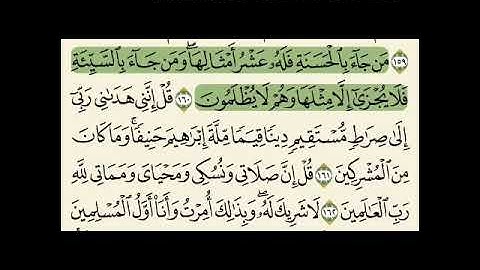 ١٥٩ مَن جَآءَ بِالْحَسَنَةِ فَلَهُۥ عَشْرُ أَمْثَالِهَا ۖ وَمَن جَآءَ بِالسَّيِّئَةِ
فَلَا يُجْزَىٰٓ إِلَّا مِثْلَهَا وَهُمْ لَا يُظْلَمُونَ ١٦٠ قُلْ إِنَّنِى هَدَىٰنِى رَبِّىٓ
إِلَىٰ صِرَٰطٍ مُّسْتَقِيمٍ دِينًا قِيَمًا مِّلَّةَ إِبْرَٰهِيمَ حَنِيفًا ۚ وَمَا كَانَ
مِنَ الْمُشْرِكِينَ ١٦١ قُلْ إِنَّ صَلَاتِى وَنُسُكِى وَمَحْيَاىَ وَمَمَاتِى لِلَّهِ
رَبِّ الْعَٰلَمِينَ ١٦٢ لَا شَرِيكَ لَهُۥ ۖ وَبِذَٰلِكَ أُمِرْتُ وَأَنَا۠ أَوَّلُ الْمُسْلِمِينَ